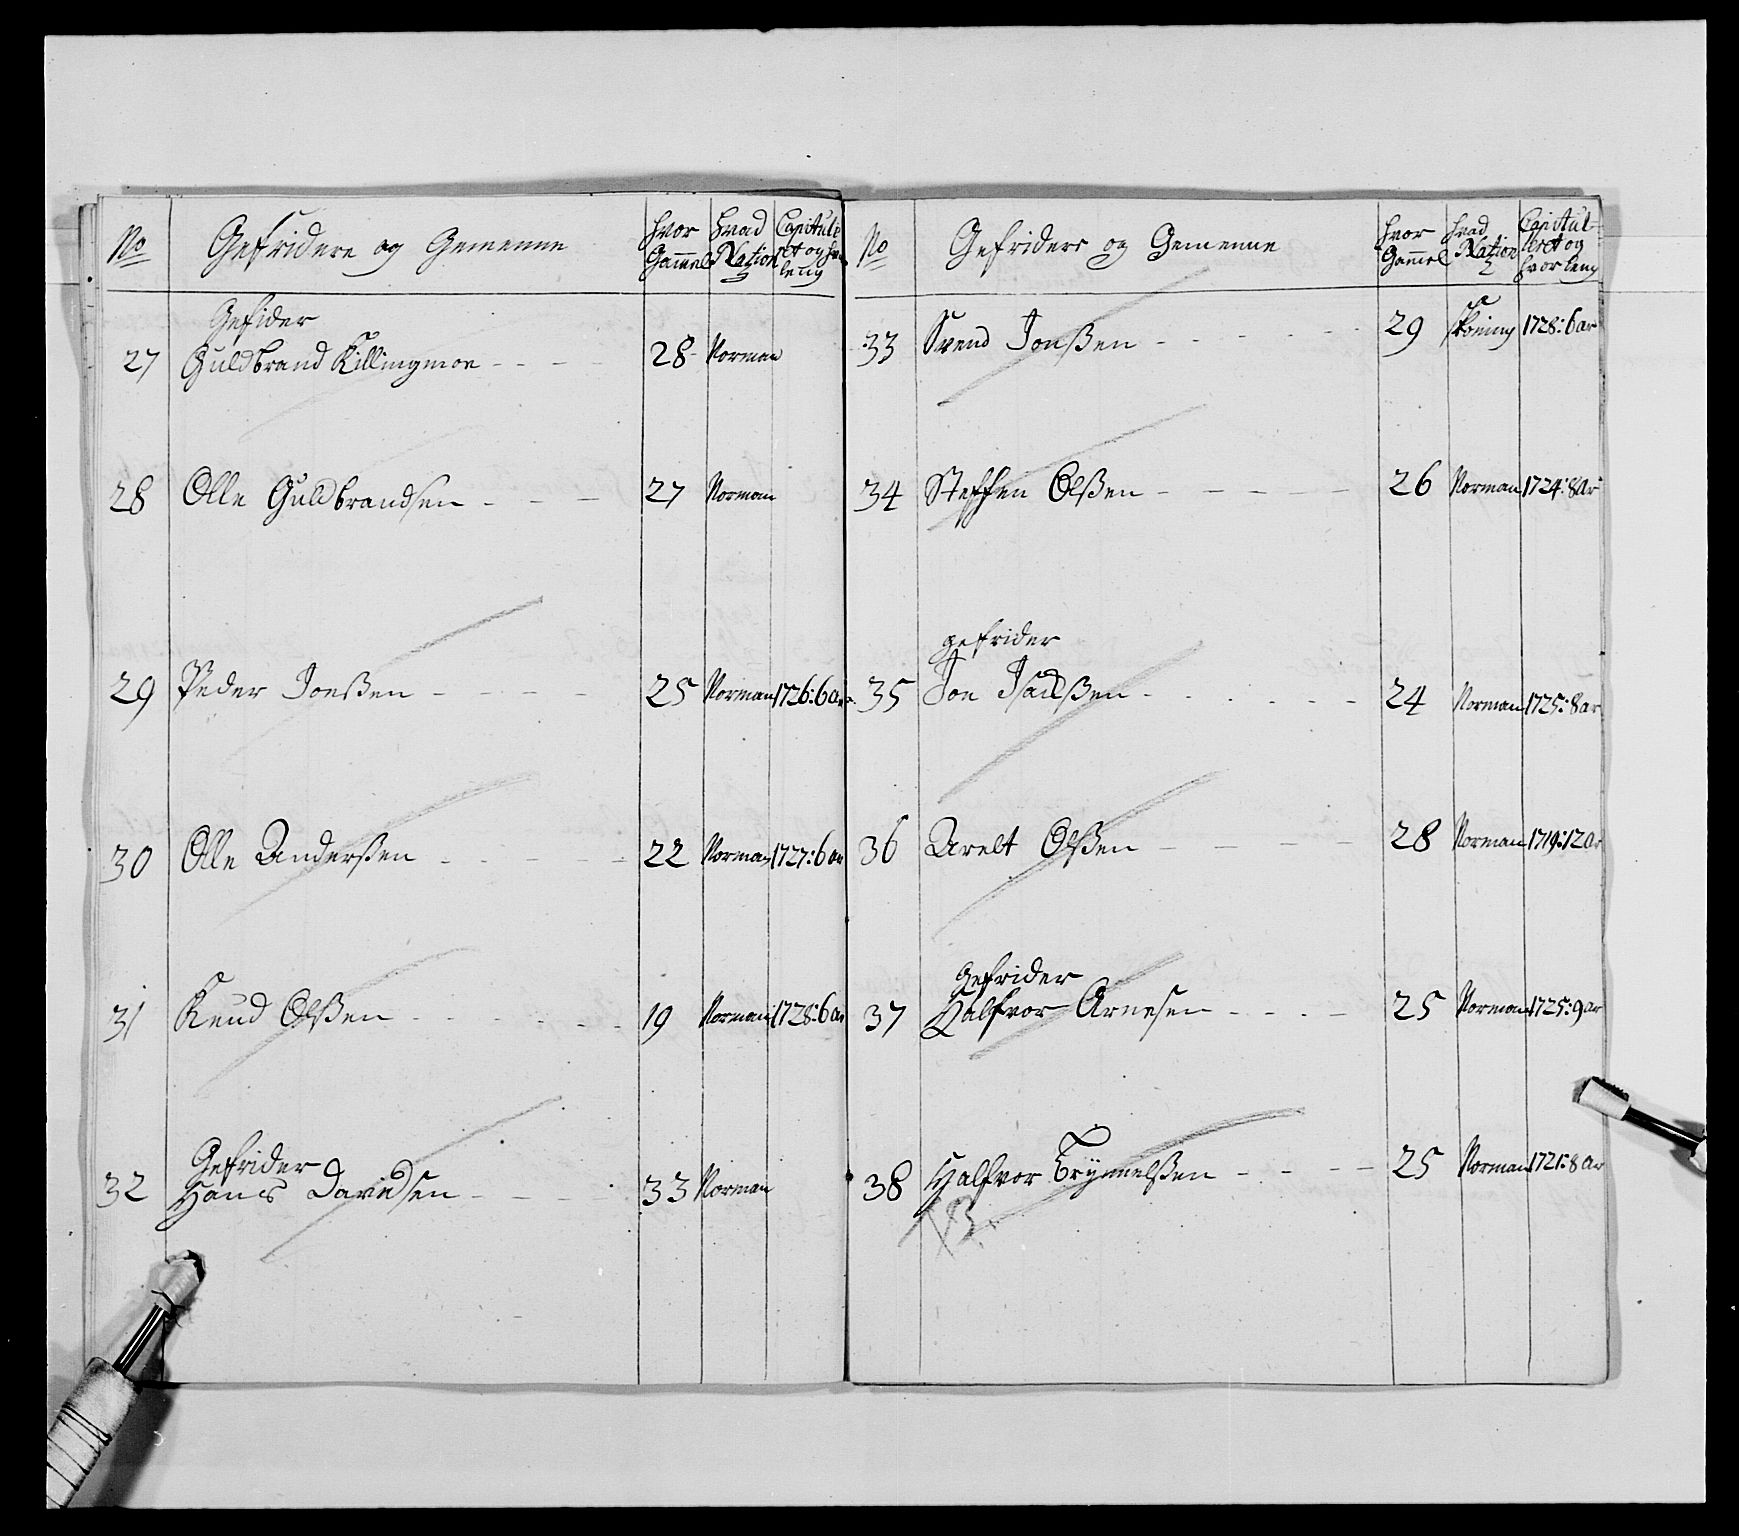 No Gefridere og Gemeene hvor Gammel hvad Nation Capitule ret og hvor leng
Gefrider
27 Guldbrand Killingmoe - - - - 28 - Norman
28 Olle Guldbrandsen - - - 27 Norman
29 Peder Joenßen - - - - - 25 Norman 1726: 6 ar
30 Olle Anderßen - - - - - 22 Norman 1727: 6 ar
31 Knud Olßen - - - - - - 19 Norman 1728: 6 ar
Gefrider
32 Hans Davidsen - - - - 33 Norman
No Gefriders og Gemeene hvor Gammel hvad Nation Capitul- leret og hvor leng
33 Svend Jonßen - - - - - - 29 1728: 6 ar
34 Steffen Olßen - - - - - 26 Norman 1724: 8 Ar
gefrider
35 Jon - - - - - - 24 Norman 1725: 8 ar
36 Arelt Olßen - - - - - 28 Norman 1719: 12 Ar
Gefrider
37 Halfvor Arnesen - - - - 25 Norman 1725: 9 ar
38 Halfvor - - - - 25 Norman 1721: 8 Ar